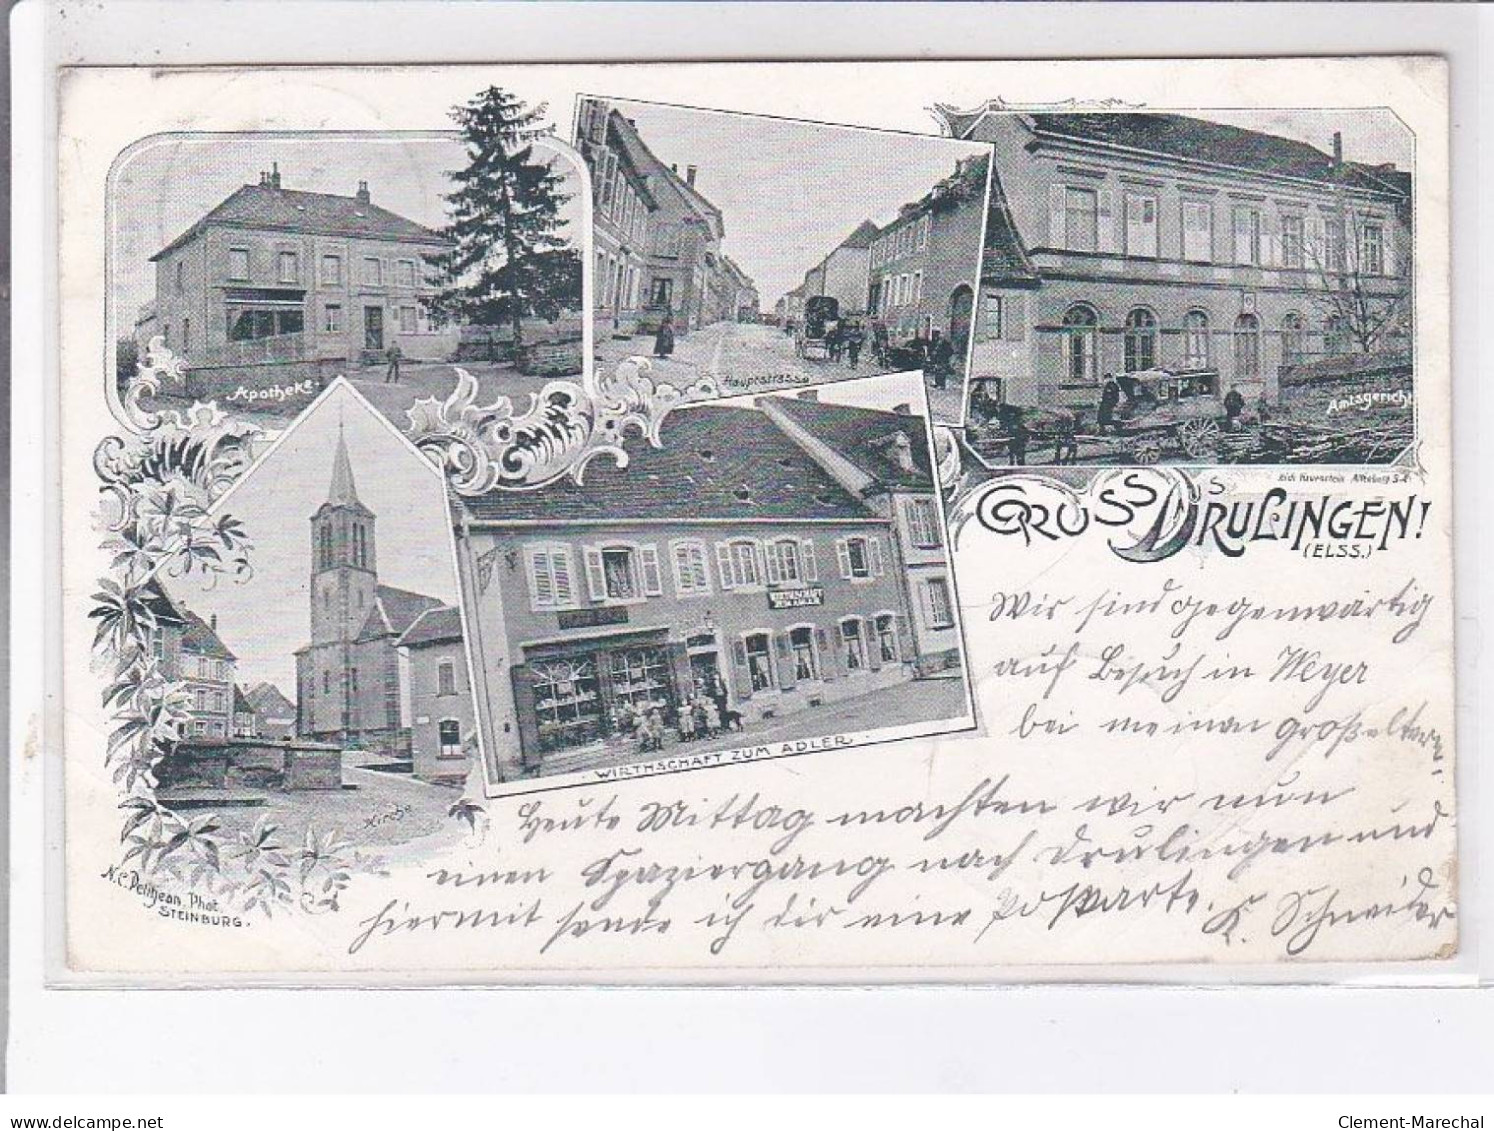 Apotheke
Hauptstrasse
Amtsgericht
GRUSS AUS DRULINGEN!
(ELSS.)
WIRTHSCHAFT
ZUM ADLER
WIRTHSCHAFT ZUM ADLER.
Kirche
N. C. Petitjean, Phot.
STEINBURG.
Wir sind gegenwärtig
auf Besuch in Weyer
bei meinen Großeltern.
Heute Mittag machten wir nun
einen Spaziergang nach Drulingen und
hiermit sende ich dir eine Postkarte.
K. Schneider
delcampe.net
Clement-Marechal